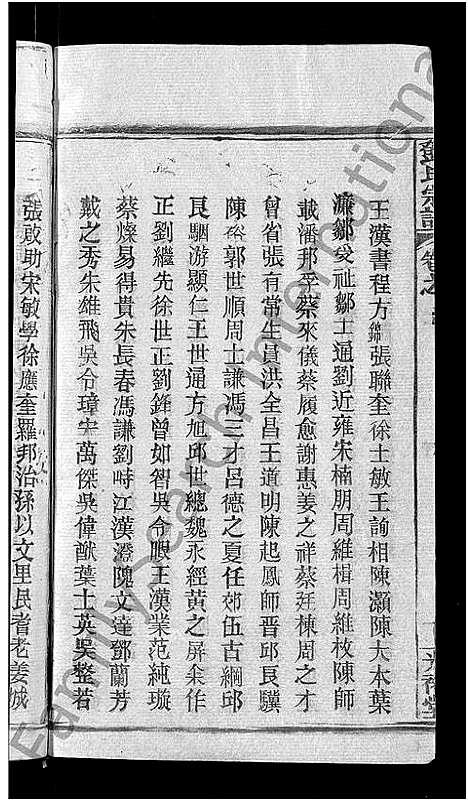 鄧氏宗譜 卷之
王漢書程方錦張聯奎徐士敏王詢相陳灝陳大本葉
濂鄒受祉鄒士通劉近雍宋楠朋周維楫周維枚陳師
載潘邦孚蔡來儀蔡履愈謝惠姜之祥蔡廷棟周之才
曾省張有常生員洪全昌王道明陳起鳳師晉邱良驥
陳裕郭世順周士謙馮三才呂德之夏任郊伍古綱邱
良駟游顯仁王世通方旭邱世總魏永經黃之屏余作
正劉繼先徐世正劉鋒曾如智吳令眼王漢業范純璇
蔡燦易得貴朱長春馮謙劉時江漢澄陳文達鄧蘭芳
戴之秀朱雄飛吳令瑋宋萬傑吳偉猷葉士英吳整若
張敢助宋敏學徐應奎羅邦治孫以文里民耆老姜城
Family Search International